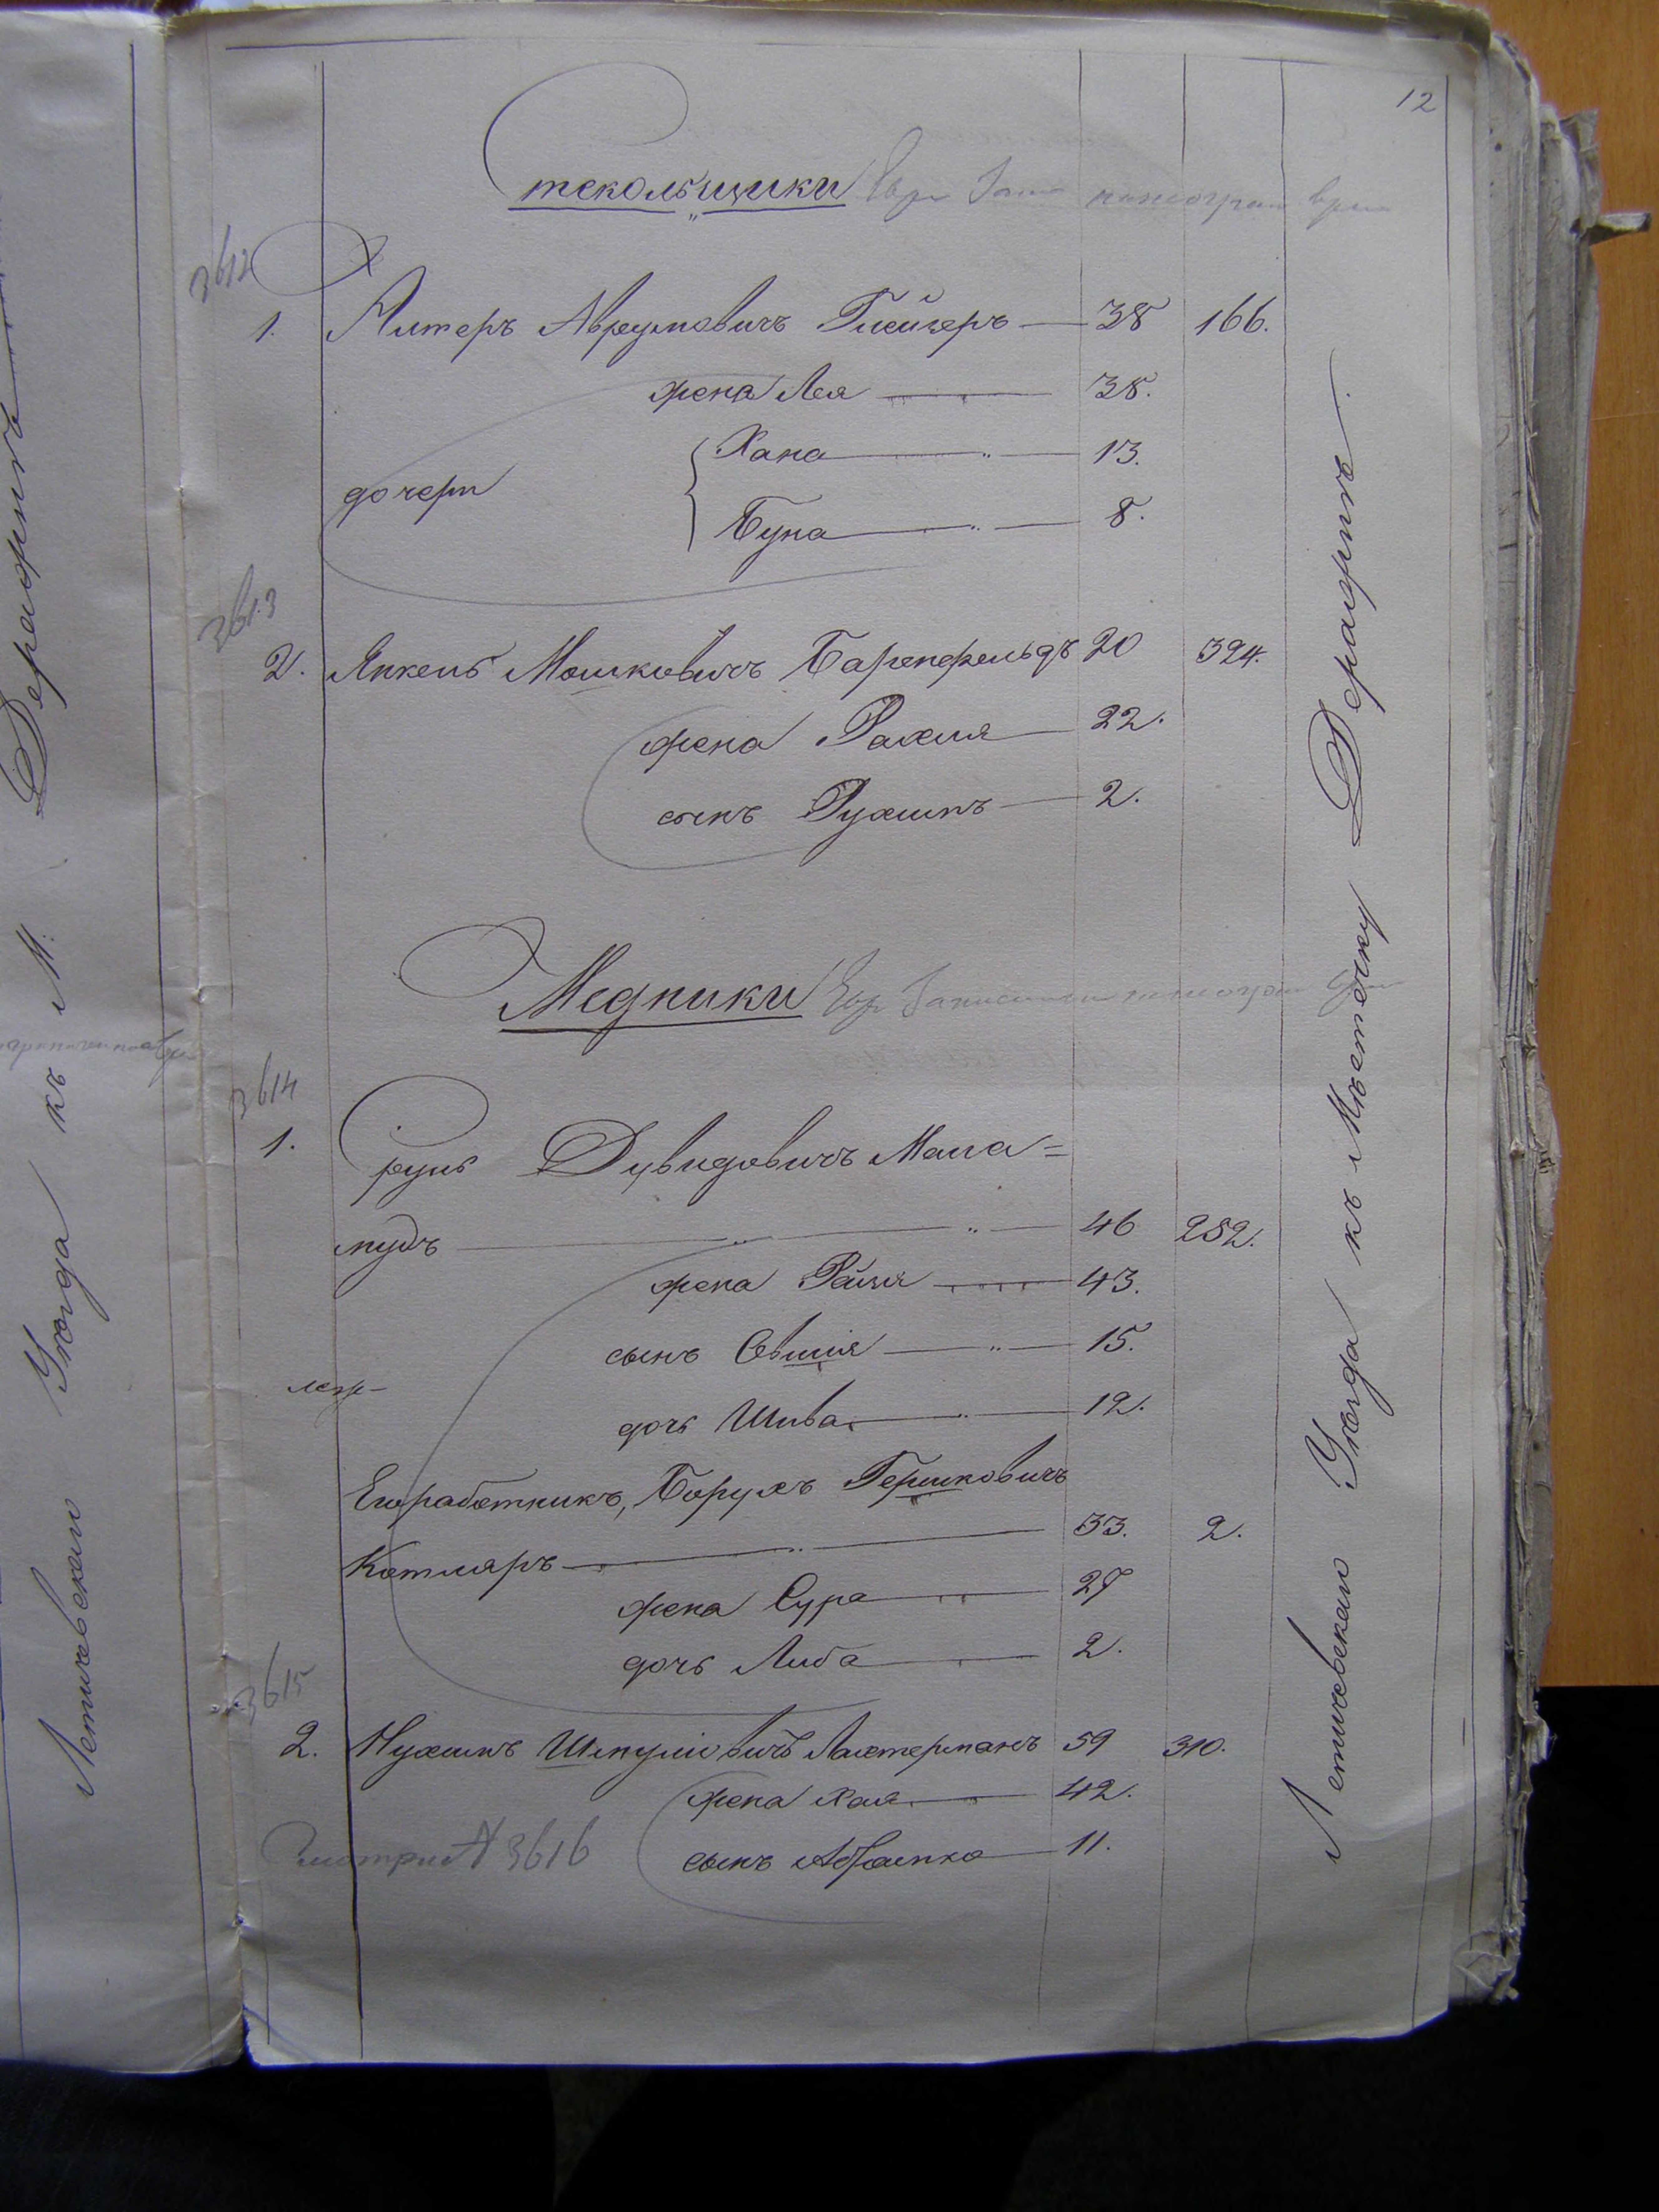 12
Стекольщики
3612
1. Алтеръ Аврумовичъ Глейзеръ — 38 166.
жена Лея — 38.
дочери { Хана — 13.
Буна — 8.
3613
2. Янкель Мошковичъ Баренфельдъ 20 324.
жена Рахля — 22.
сынъ Рухлинъ — 2.
Медники
3614
1. Сруль Дувидовичъ Мала=
мудъ — 46 252.
жена Рейзя — 43.
сынъ Овшія — 15.
дочь Шива — 12.
Его работникъ, Борухъ Гершковичъ
Котляръ — 33. 2.
жена Сура — 27
дочь Либа — 2.
3615
2. Нухимъ Шмулiовичъ Лахтерманъ 59 310.
жена Хая — 42.
сынъ Абрамко — 11.
3616
Летичевскаго Уѣзда къ Мѣстечку Деражнѣ.
Летичевскаго Уѣзда къ М. Деражнѣ